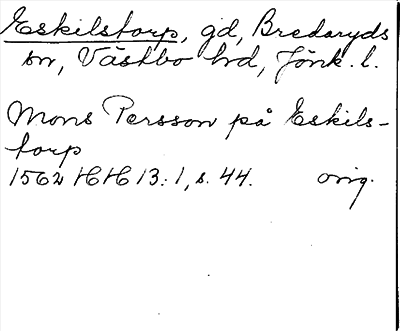 Eskilstorp, gd, Bredaryds
sn, Västbo hd, Jönk. l.
Mons Persson på Eskils-
torp
1562 HH 13: 1, s. 44. orig.